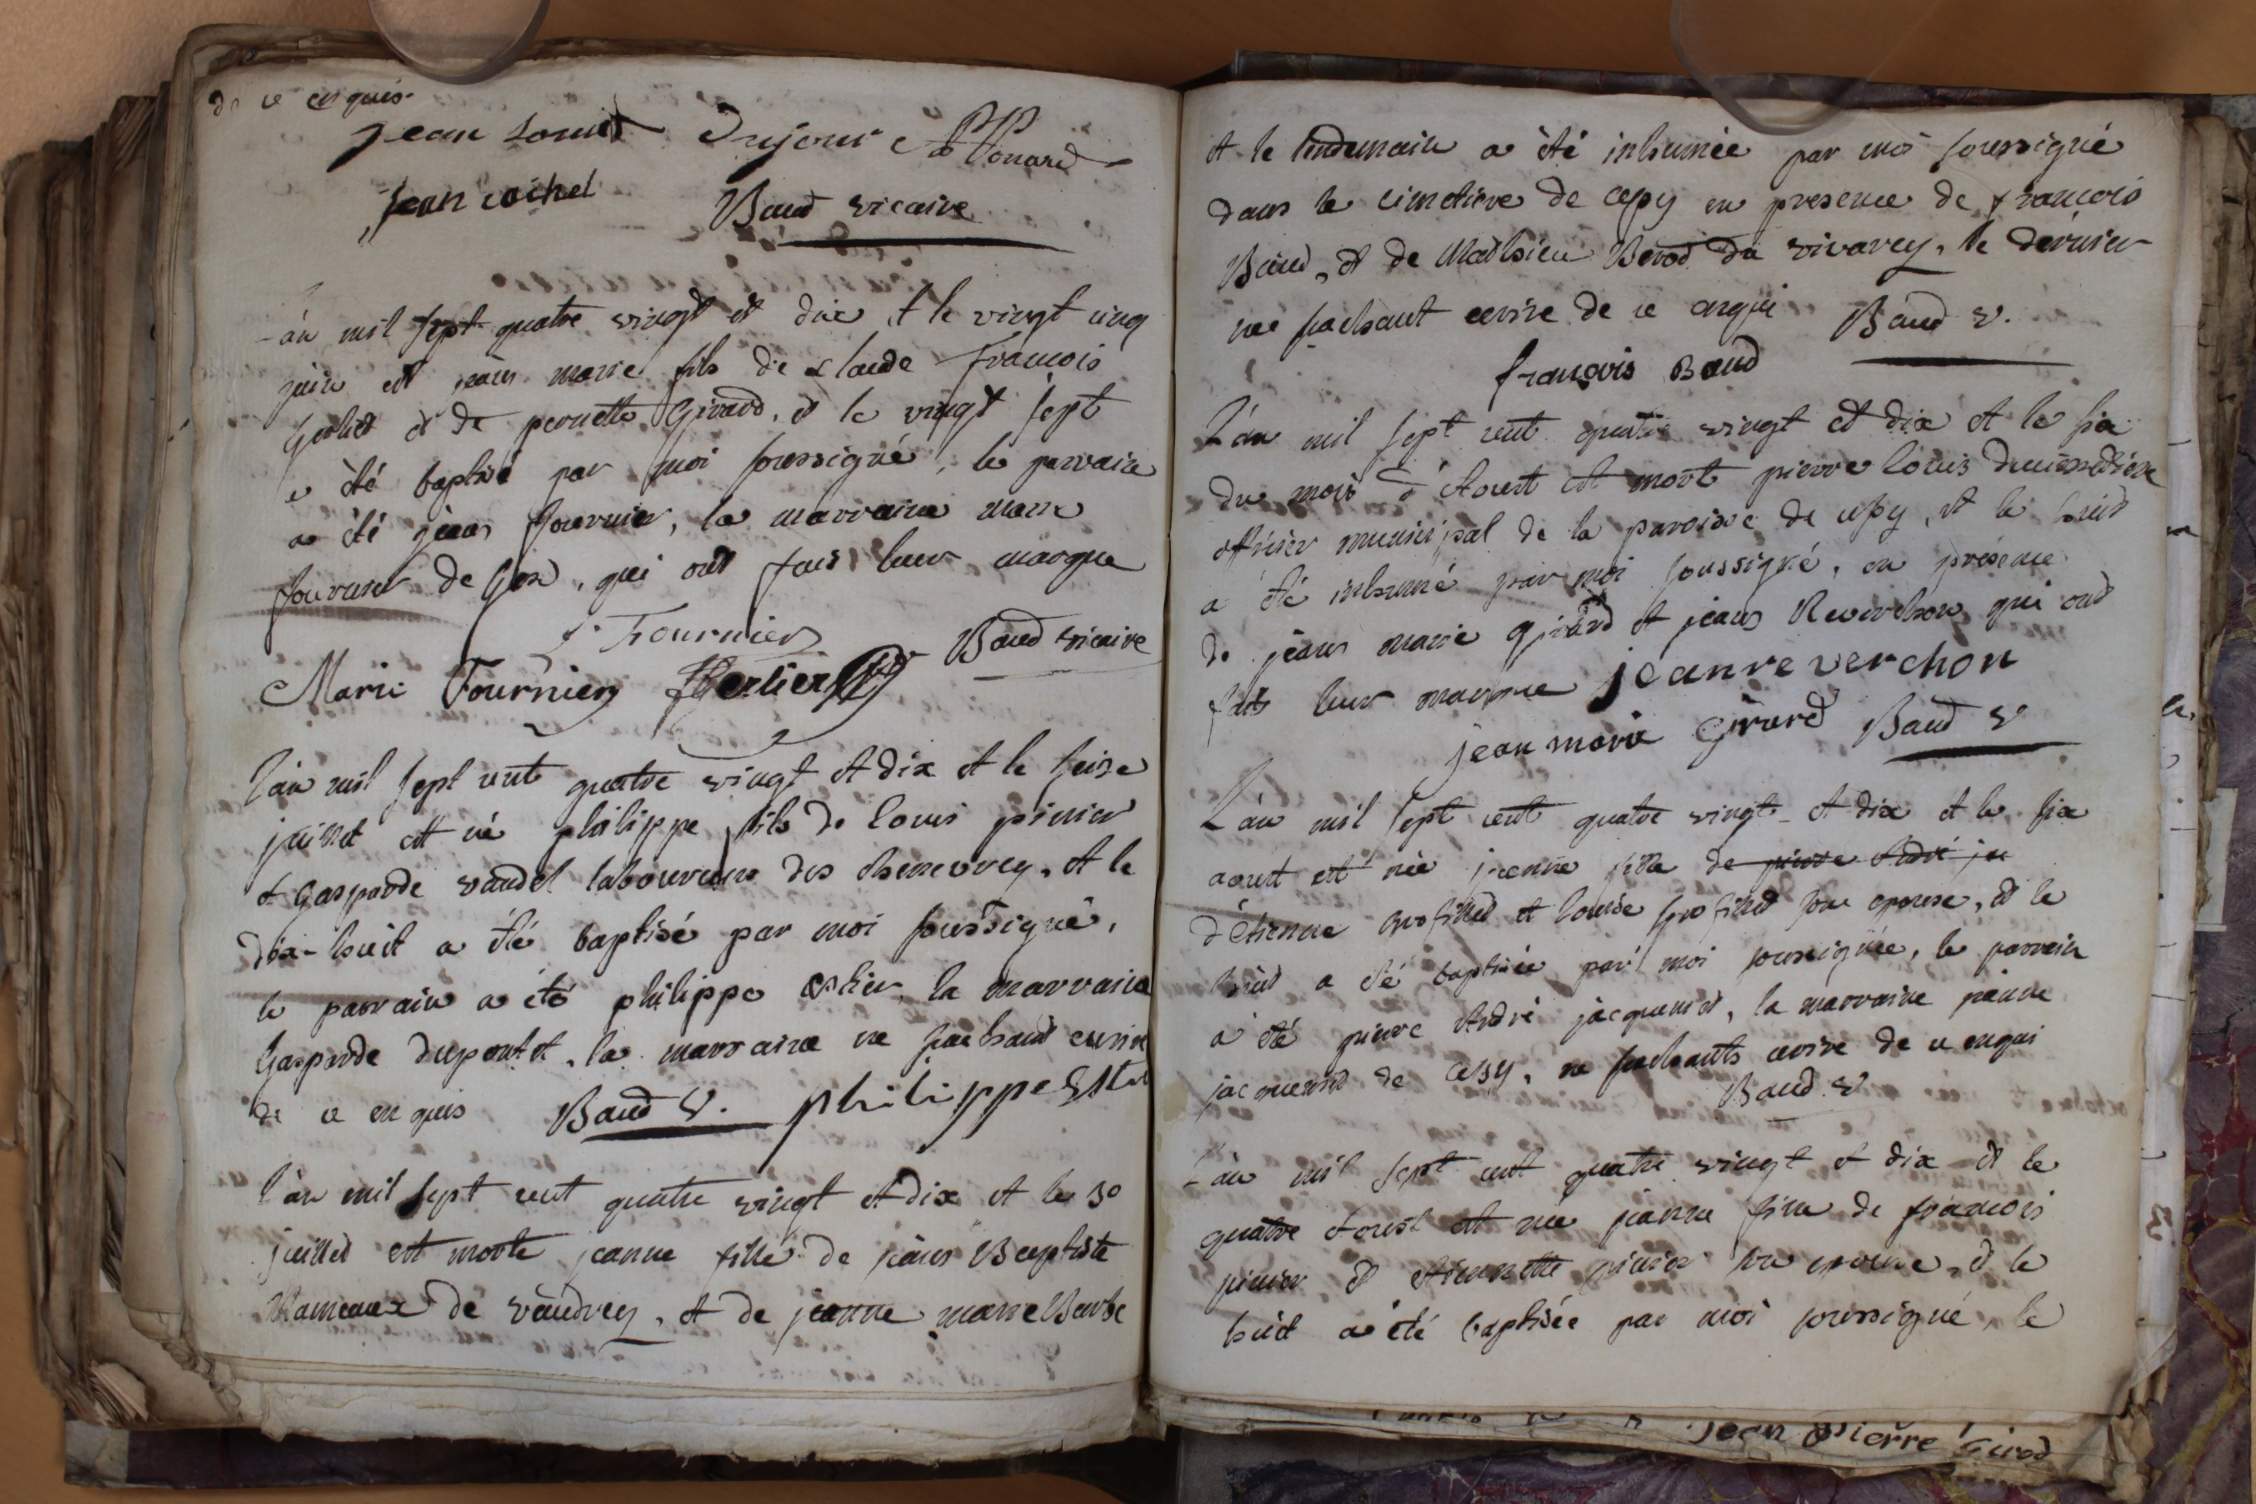 de ce enquis
jean Louis Dujour
jean cochel Baud vicaire
L'an mil sept quatre vingt et dix et le vingt cinq
juin est marie fils de claude francois
et de pernette Girard, et le vingt sept
a été baptisé par moi soussigné, le parrain
a été jean fournier, la marraine marie
fournier de Gex, qui ont fait leur marque
Fournier Baud vicaire
Marie Fournier
L'an mil sept cent quatre vingt et dix et le seize
juillet est né philippe fils de Louis pinier
et Gasparde vaudel laboureurs des chenevrey, et le
dix-huit a été baptisé par moi soussigné,
le parrain a été philippe, la marraine
Gasparde dupontet, la marraine ne sachant ecrire
de ce enquis Baud V. philippe
l'an mil sept cent quatre vingt et dix et le 30
juillet est morte jeanne fille de jean Baptiste
Rameaux de vaudrey, et de jeanne marie Barbe
et le lendemain a été inhumée par moi soussigné
dans le cimetiere de cessy en presence de francois
Baud, et de Mathieu Berod du vivarey, le dernier
ne sachant ecrire de ce enqui Baud V.
françois Baud
L'an mil sept cent quatre vingt et dix et le six
du mois d'Aoust est mort pierre Louis
officier municipal de la paroisse de cessy, et le huit
a été inhumé par moi soussigné, en présence
de jean marie Girard et jean Reverchon qui ont
fait leur marque jean reverchon
jean marie Girard Baud V
L'an mil sept cent quatre vingt et dix et le six
aoust est née jeanne fille de pierre André ja
d'étienne et Louise son epouse, et le
huit a été baptisée par moi soussignée, le parrain
a été pierre André jacquemet, la marraine jeanne
jacquemet de cessy, ne sachants ecrire de ce enqui
Baud V
L'an mil sept cent quatre vingt et dix et le
quatre Aoust est née jeanne fille de francois
pinier et etiennette pinier son epouse, et le
huit a été baptisée par moi soussigné, le
jean Pierre Girod